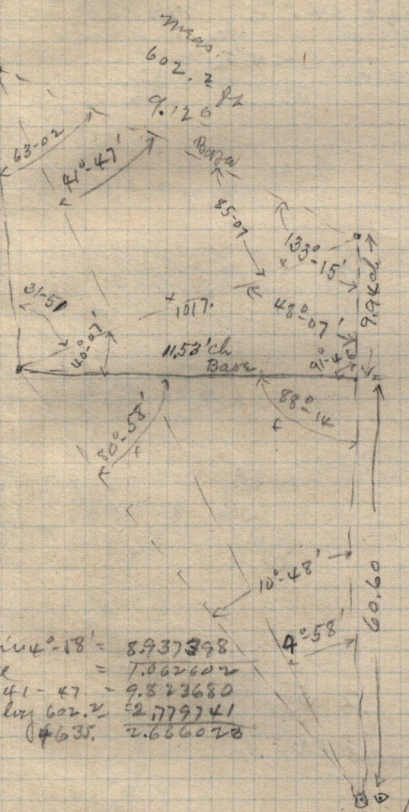 Meas.
602.2 ft
9.126
Base
63-02
41°-47'
85-07
133°-15'
9.94 ch
31-51
40-07'
1017.
48°-07'
11.53' ch
Base
88°-14
80°-58'
10°-48'
4°-58'
60.60
sin 4°-58' = 8.937398
= 1.062602
41-47 = 9.823680
log 602.2 = 2.779741
4635. 2.666023